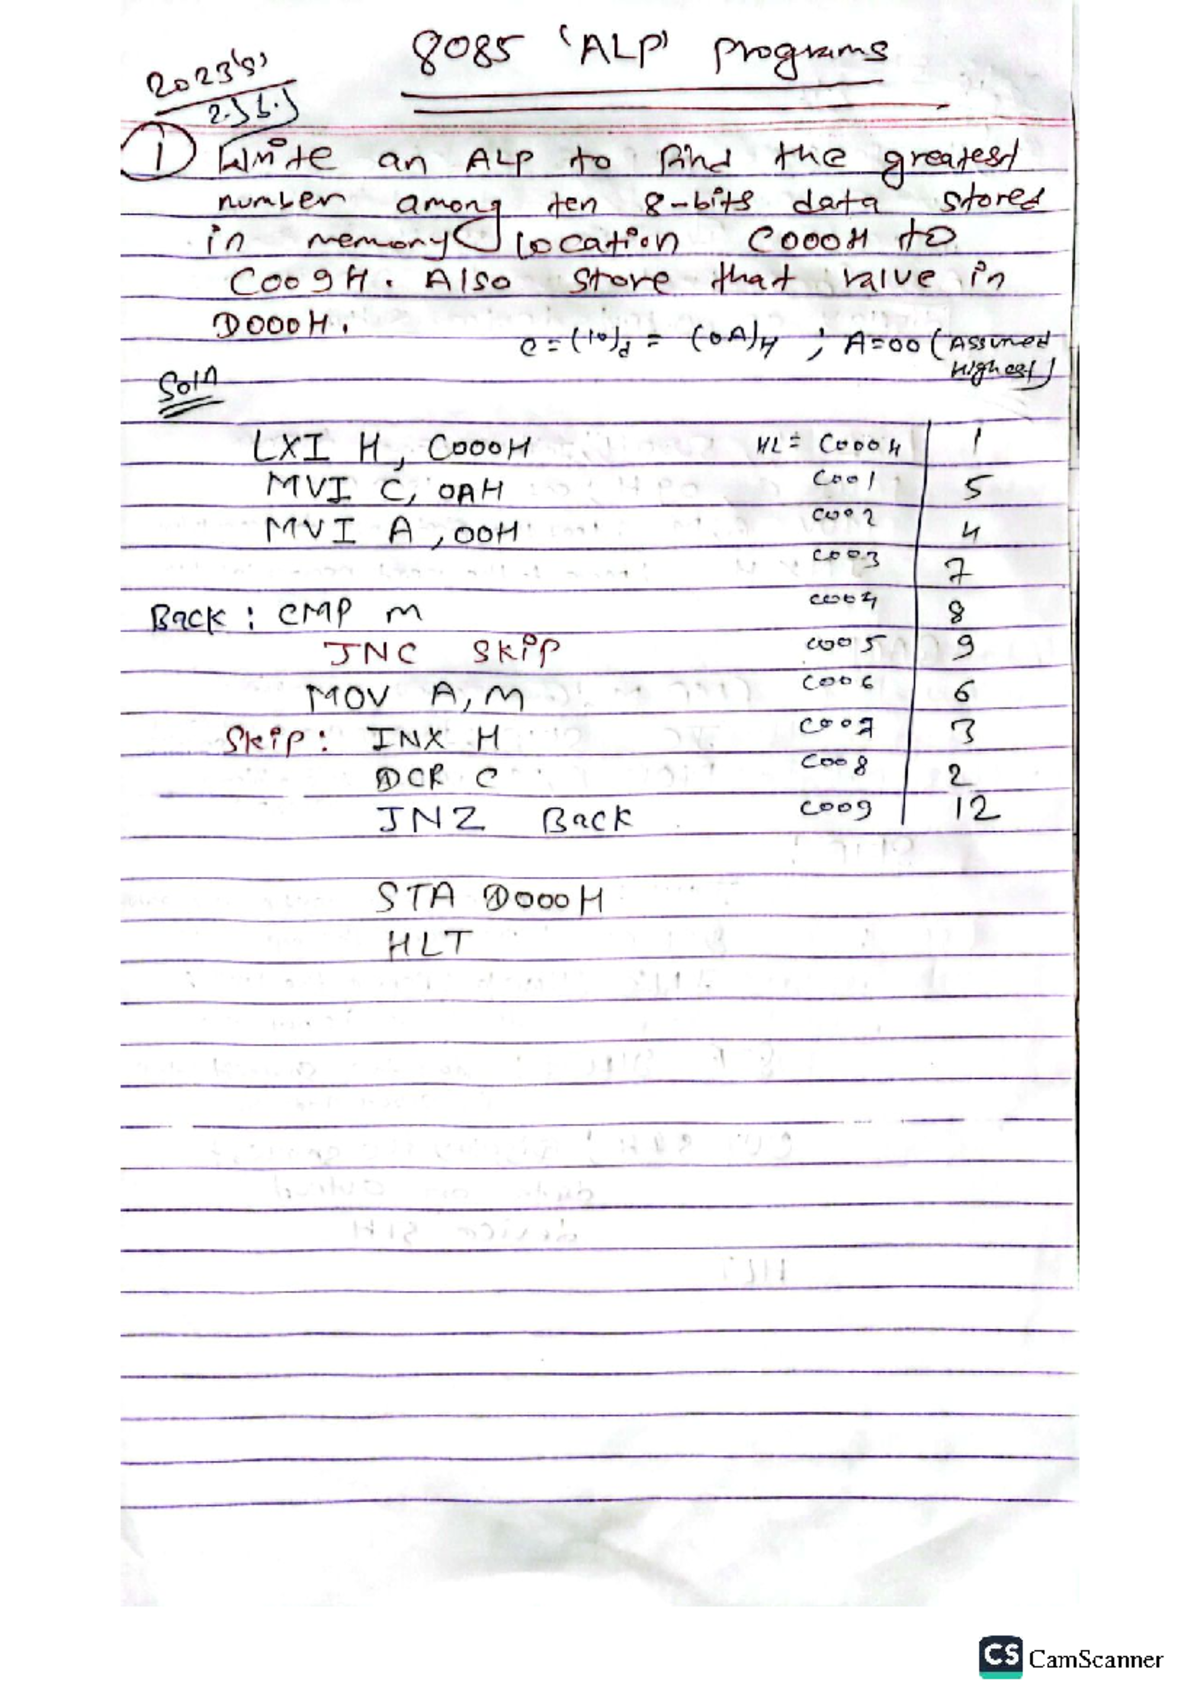 2023(s)
2.) b.)
8085 'ALP' programs
1 Write an ALP to find the greatest
number among ten 8-bits data stored
in memory location C000H to
C009H. Also store that value in
D000H.
C = (10)d = (0A)H ; A=00 (Assumed
Highest)
Soln
LXI H, C000H HL = C000H 1
MVI C, 0AH C001 5
MVI A, 00H C002 4
C003 7
Back : CMP M C004 8
JNC Skip C005 9
MOV A, M C006 6
Skip : INX H C007 3
DCR C C008 2
JNZ Back C009 12
STA D000H
HLT
CS CamScanner